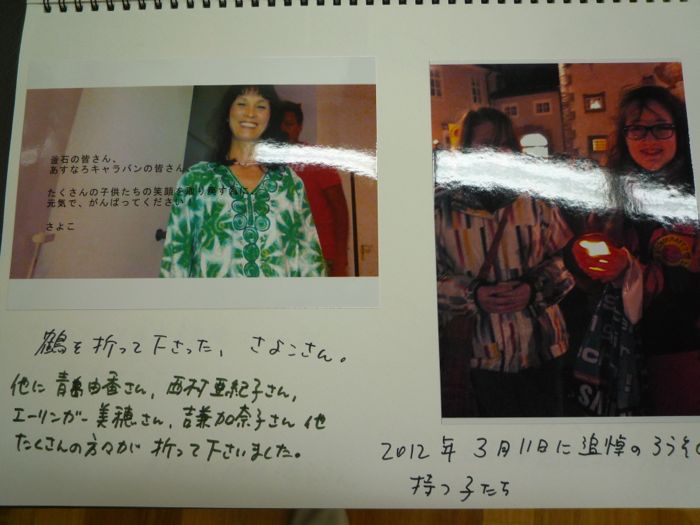 釜石の皆さん、
あすなろキャラバンの皆さん
たくさんの子供たちの笑顔を取り戻す為に、
元気で、がんばってください
さよこ
鶴を折って下さった、さよこさん。
他に青島由香さん、西村亜紀子さん、
エーリンガー美穂さん、吉兼加奈子さん他
たくさんの方々が折って下さいました。
2012年3月11日に追悼のろうそく
持つ子たち